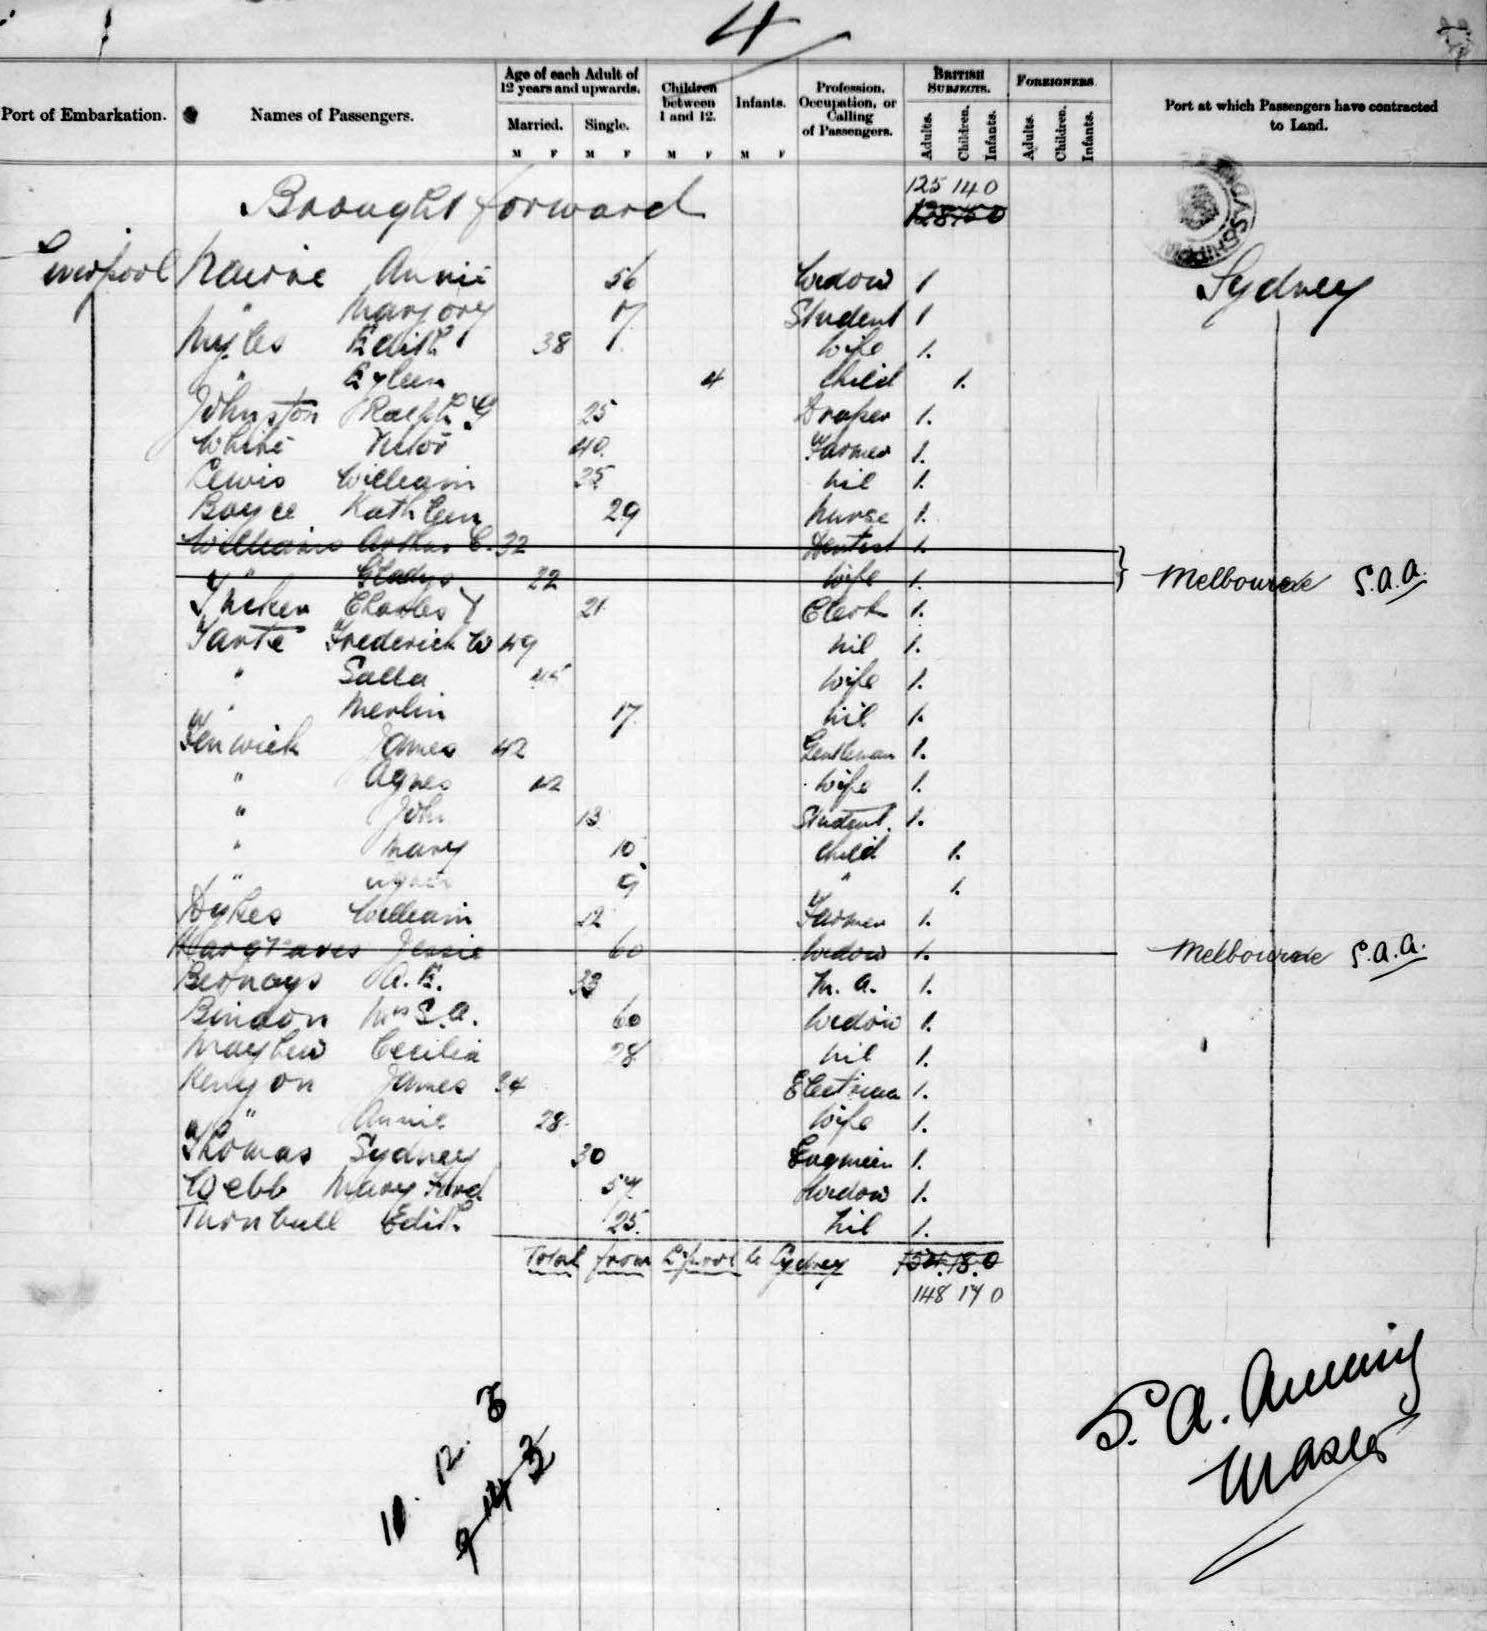 4
Port of Embarkation.
Names of Passengers.
Age of each Adult of 12 years and upwards.
Married.
Single.
M F M F
Children between 1 and 12.
M F
Infants.
M F
Profession, Occupation, or Calling of Passengers.
BRITISH SUBJECTS.
Adults. Children. Infants.
FOREIGNERS
Adults. Children. Infants.
Port at which Passengers have contracted to Land.
Brought forward 125 14 0
Liverpool Nairne Annie 56 Widow 1 Sydney
" Marjory 17 Student 1
Myles Edith 38 Wife 1.
" Eyleen 4 Child 1.
Johnston Ralph G 25 Draper 1.
White 40. Farmer 1.
Lewis William 25 nil 1.
Boyce Kathleen 29 Nurse 1.
Williams Arthur C. 32 Dentist 1.
" Gladys 22 Wife 1. Melbourne S.A.A.
Charles 21 Clerk 1.
Frederick W 49 nil 1.
" 45 Wife 1.
" Merlin 17 nil 1.
Fenwick James 42 Gentleman 1.
" Agnes 42 Wife 1.
" John 13 Student 1.
" Mary 10 Child 1.
" Agnes 9 " 1.
Dykes William 22 Farmer 1.
Hargraves Jessie 60 Widow 1. Melbourne S.A.A.
Bernays A. E. 23 M. A. 1.
Bindon Mrs S. A. 60 Widow 1.
Mayhew Cecilia 28 nil 1.
Kenyon James 34 Electrician 1.
" Annie 28 Wife 1.
Thomas Sydney 30 Engineer 1.
Webb Mary Ford 57 Widow 1.
Turnbull Edith 25. Nil 1.
Total from L'pool to Sydney 154. 18. 0
148 17 0
S. A. Anning
Master
10. 12. 3